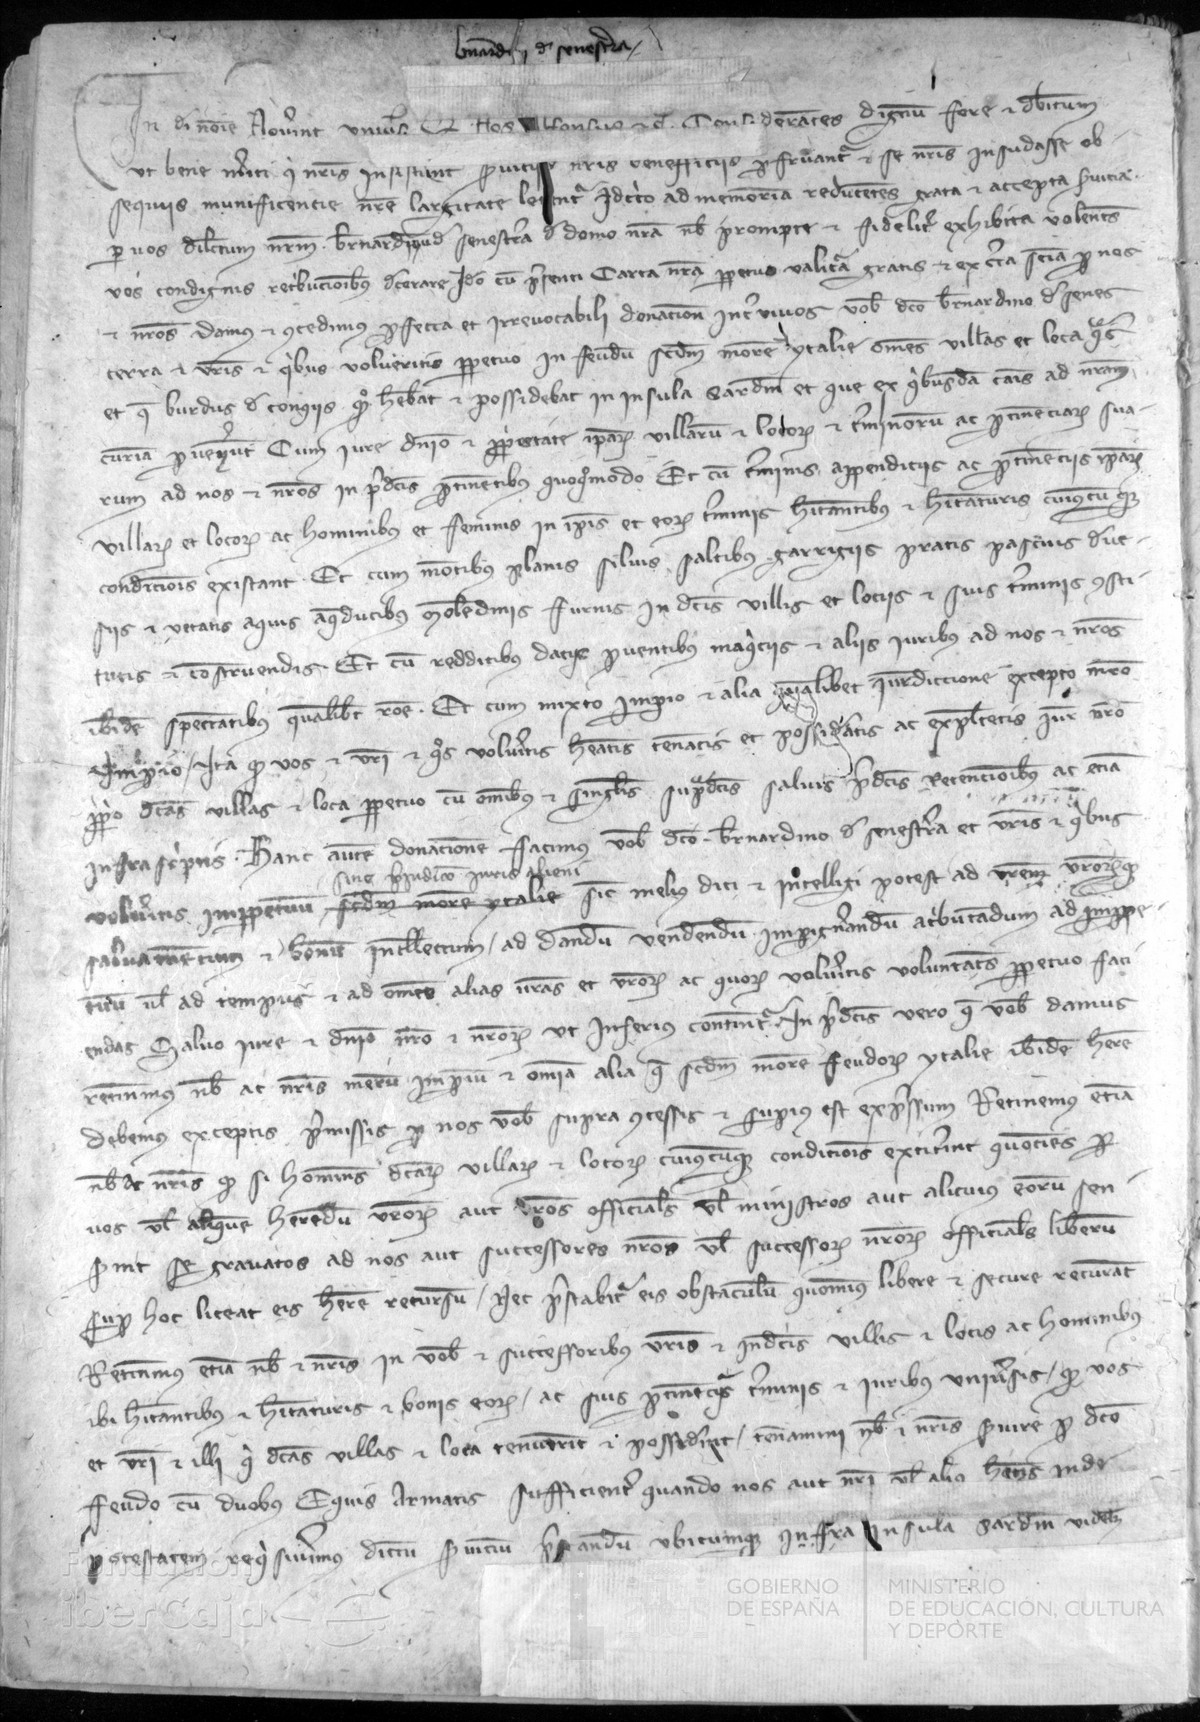 bnardi d senestra
In di noie Nov'int univ'si Q Nos Alfonsus etc. Considerantes dignu fore et debitum
ut bene m'iti q nris insistunt s'viciis nris beneficiis p fruant' et se nris insudasse ob
sequiis munificentie nre largitate letent' Idcirco ad memoriam reducentes grata et accepta s'vicia
p vos dilctum nrm bernardinu d senestra d domo nra nb prompte et fidelit' exhibita volentes
vos condignis retribucionibus decorare Ido cu p'senti Carta nra ppetuo valitura gratis et ex c'ta scia p nos
et nros damus et 9cedimus p fecta et irrevocabili donacion int' vivos vob dco bernardino d senes
terra et vris et qbus volueritis ppetuo in feudu scdm more ytalie omes villas et loca q
et q burdus d congiis hebat et possidebat in insula Sardin et que ex qbusda cais ad nram
curia p ven'unt Cum iure dnio et pprietate ipar villaru et locor et t'minoru ac p tinenciar sua
rum ad nos et nros in p'dcis p tinetibus quoq'modo Et cu t'minis appendiciis ac p tineciis ipar
villar et locor ac hominibus et feminis in ipis et eor t'minis hitantibus et hitaturis cuiuscuq
condicionis existant Et cum motibus planis silvis saltibus garrigiis pratis pascuis duc
siis et vetatis aquis aqducibus molendinis furnis in dcis villis et locis et suis t'minis 9sti
tutis et construendis Et cu redditibus daciis p ventibus maq'ciis et aliis iuribus ad nos et nros
ibide spectatibus qualibet roe Et cum mixto impio et alia qualibet iurdiccione excepto mero
Impio Ita q vos et vri et qs volu'itis heatis teneatis et possideatis ac expletetis iur nro
ppo dcas villas et loca ppetuo cu omibus et singlis sup'dcis salvis p'dcis retencionibus ac etia
infra scriptis Hanc aute donacione facimus vob dco bernardino d senestra et vris et qbus
sine p'iudico iuris alieni
volu'itis imppetuu scdm more ytalie sic melius dici et intelligi potest ad vrem vrorq
salvamentum et bonu intllectum ad dandu vendendu impignandu atributadum ad imppe
tuu ul ad tempus et ad omes alias vras et vror ac quor volu'itis voluntates ppetuo faci
endas Salvo iure et dnio nro et nror ut inferius continet' In p'dcis vero q vob damus
retinimus nb ac nris meru impiu et omia alia q scdm more feudor ytalie ibide here
debemus exceptis p'missis p nos vob supra 9cessis et supius est exp'ssum Retinemus etia
nb ac nris q si homines dcar villar et locor cuiuscuq condicionis extit'int quocies p
vos ul aliquem heredu vror aut vros officiales ul ministros aut alicuius eoru sen
s'int se gravatos ad nos aut successores nros ul successor nror officiales liberu
sup hoc liceat eis here recursu Nec p'stabit' eis obstaculu quominus libere et secure recurrat
Retinimus etia nb et nris in vob et successoribus vris et in dcis villis et locis ac hominibus
ibi hitantibus et hitaturis et bonis eor ac suis p tineciis t'minis et iuribus univ'sis q vos
et vri et illi q dcas villas et loca tenu'int et possed'int teneamini nb et nris s'vire p dco
feudo cu duobus Equis armatis sufficient' quando nos aut nri ul alius hens inde
potestatem reqsiv'imus dictu s'viciu p'standu ubicumq infra insula Sardin videlt
Fundación
iberCaja
GOBIERNO
DE ESPAÑA
MINISTERIO
DE EDUCACIÓN, CULTURA
Y DEPORTE